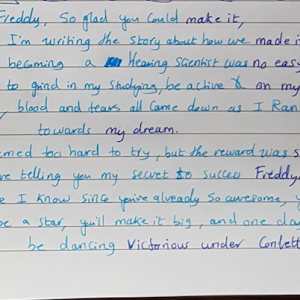 Freddy, So glad you could make it,
I'm writing the story about how we made i
becoming a Hearing Scientist was no easy
to grind in my studying, be active & on my
blood and tears all came down as I Ran
towards my dream.
emed too hard to try, but the reward was s
ve telling you my secret to success Freddy
e I know since you've already so awesome, y
be a star, you'll make it big, and one da
be dancing Victorious under Confett